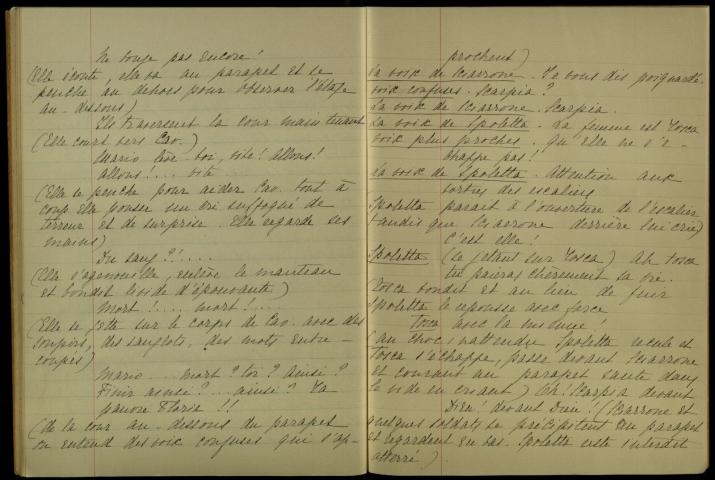 Ne bouge pas encore!
(Elle écoute, elle va au parapet et se
penche au dehors pour observer l'étage
au-dessous)
Ils traversent la cour maintenant
(Elle court vers Cav.)
Mario lève-toi, vite! Allons!
Allons!... vite...
(Elle se penche pour aider Cav. tout à
coup elle pousse un cri suffoqué de
terreur et de surprise. Elle regarde ses
mains)
Du sang?!....
(Elle s'agenouille, enlève le manteau
et bondit livide d'épouvante)
Mort!.... mort!...
(Elle se jette sur le corps de Cav. avec des
soupirs, des sanglots, des mots entre-
coupés)
Mario... mort? toi? ainsi?
Finir ainsi?... ainsi? Ta
pauvre Floria!!
(de la cour au-dessous du parapet
on entend des voix confuses qui s'ap-
prochent)
La voix de Sciarrone. Je vous dis poignardé.
voix confuses. Scarpia?
La voix de Sciarrone. Scarpia.
La voix de Spoletta. La femme est Tosca
voix plus proches. Qu'elle ne s'é-
chappe pas!
La voix de Spoletta. Attention aux
sorties des escaliers
Spoletta paraît à l'ouverture de l'escalier
tandis que Sciarrone derrière lui crie)
C'est elle!
Spoletta (se jetant sur Tosca) Ah Tosca
tu paieras chèrement sa vie.
(Tosca bondit et au lieu de fuir
Spoletta le repousse avec force
Tosca avec la mienne!
(au choc inattendu Spoletta recule et
Tosca s'échappe, passe devant Sciarrone
et courant au parapet saute dans
le vide en criant) Oh! Scarpia devant
Dieu! devant Dieu! (Sciarrone et
quelques soldats se précipitent au parapet
et regardent en bas. Spoletta reste interdit
atterré).